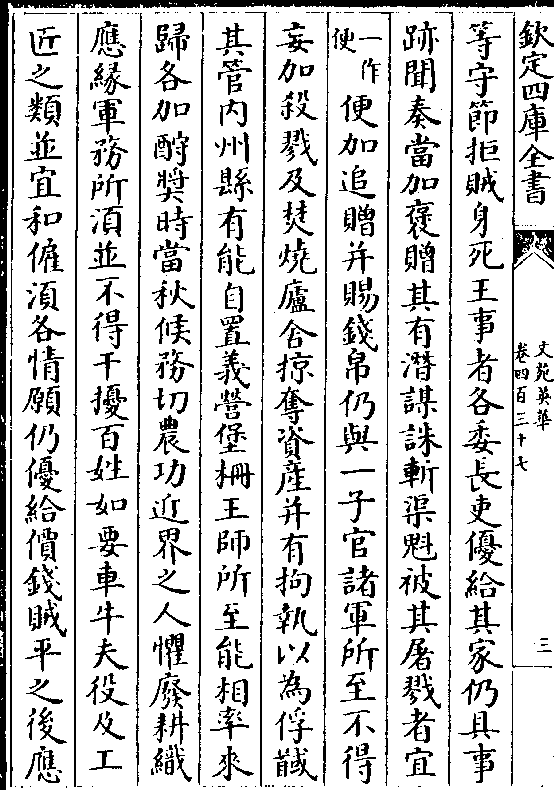 欽定四庫全書
文苑英華
卷四百三十七
三
等守節拒賊身死王事者各委長吏優給其家仍具事
跡聞奏當加褒贈其有潛謀誅斬渠魁被其屠戮者宜
一作便
便加追贈并賜錢帛仍與一子官諸軍所至不得
妄加殺戮及焚燒廬舍掠奪資産并有拘執以為俘馘
其管内州縣有能自置義營堡柵王師所至能相率來
歸各加酧奬時當秋候務切農功近界之人懼廢耕織
應緣軍務所湏並不得干擾百姓如要車牛夫役及工
匠之類並宜和僱湏各情願仍優給價錢賊平之後應